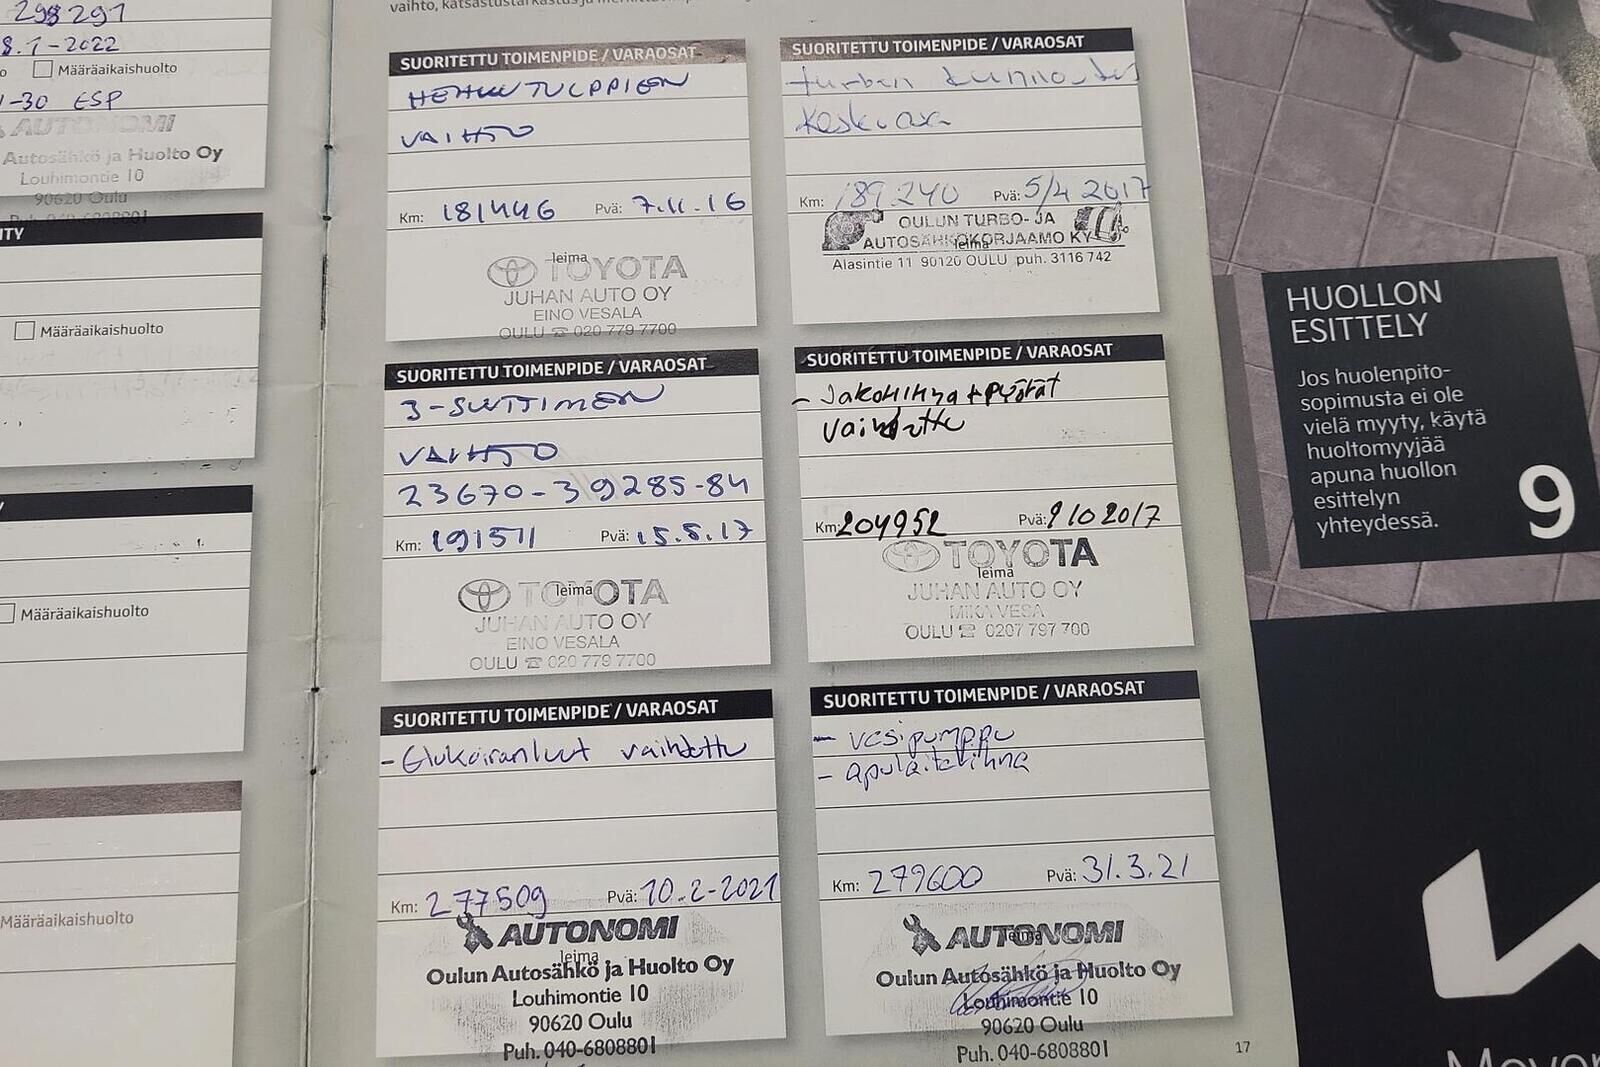 298291
8.1-2022
Määräaikaishuolto
-30 ESP
AUTONOMI
Autosähkö ja Huolto Oy
Louhimontie 10
90620 Oulu
Puh. 040-6808801
ITY
Määräaikaishuolto
Y
Määräaikaishuolto
Määräaikaishuolto
vaihto, katsastustarkastus ja
SUORITETTU TOIMENPIDE / VARAOSAT
HEHKUTULPPIEN
VAIHTO
Km: 181446 Pvä: 7.11.16
leima
TOYOTA
JUHAN AUTO OY
EINO VESALA
OULU ☎ 020 779 7700
SUORITETTU TOIMENPIDE / VARAOSAT
turbon kunnostus
Keskiosa
Km: 189 240 Pvä: 5/4 2017
OULUN TURBO- JA
AUTOSÄHKÖKORJAAMO KY
leima
Alasintie 11 90120 OULU puh. 3116 742
SUORITETTU TOIMENPIDE / VARAOSAT
3-SUUTTIMEN
VAIHTO
23670-39285-84
Km: 191511 Pvä: 15.5.17
leima
TOYOTA
JUHAN AUTO OY
EINO VESALA
OULU ☎ 020 779 7700
SUORITETTU TOIMENPIDE / VARAOSAT
- Jakohihna + pyörät
vaihdettu
Km: 204952 Pvä: 9/10 2017
TOYOTA
leima
JUHAN AUTO OY
MIKA VESA
OULU ☎ 0207 797 700
SUORITETTU TOIMENPIDE / VARAOSAT
- Etukoiranluut vaihdettu
Km: 277509 Pvä: 10.2-2021
AUTONOMI
leima
Oulun Autosähkö ja Huolto Oy
Louhimontie 10
90620 Oulu
Puh. 040-6808801
SUORITETTU TOIMENPIDE / VARAOSAT
- vesipumppu
- apulaitehihna
Km: 279600 Pvä: 31.3.21
AUTONOMI
leima
Oulun Autosähkö ja Huolto Oy
Louhimontie 10
90620 Oulu
Puh. 040-6808801
17
HUOLLON
ESITTELY
Jos huolenpito-
sopimusta ei ole
vielä myyty, käytä
huoltomyyjää
apuna huollon
esittelyn
yhteydessä.
9